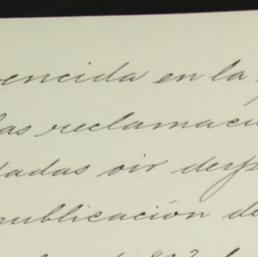 encida en la
as reclamaci
tadas oir desp
publicación de